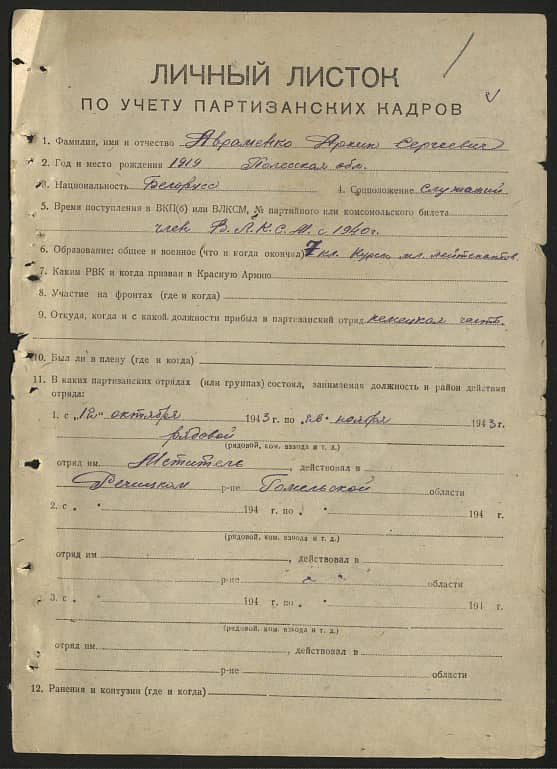 ЛИЧНЫЙ ЛИСТОК
ПО УЧЕТУ ПАРТИЗАНСКИХ КАДРОВ
1. Фамилия, имя и отчество Авраменко Архип Сергеевич
2. Год и место рождения 1919 Полесская обл.
3. Национальность Белорусс 4. Соцположение служащий
5. Время поступления в ВКП(б) или ВЛКСМ, № партийного или комсомольского билета
член В.Л.К.С.М. с 1940г.
6. Образование: общее и военное (что и когда окончил) 7 кл. Курсы мл. лейтенантов.
7. Каким РВК и когда призван в Красную Армию
8. Участие на фронтах (где и когда)
9. Откуда, когда и с какой должности прибыл в партизанский отряд немецкая часть.
10. Был ли в плену (где и когда)
11. В каких партизанских отрядах (или группах) состоял, занимаемая должность и район действия
отряда:
1. с „12" октября 1943 г. по „26" ноября 1943 г.
рядовой
(рядовой, ком. взвода и т. д.)
отряд им. Мститель, действовал в
Речицком р-не Гомельской области
2. с „ " 194 г. по „ " 194 г.
(рядовой, ком. взвода и т. д.)
отряд им , действовал в
р-не области
3. с „ " 194 г. по „ " 194 г.
(рядовой, ком. взвода и т. д.)
отряд им. , действовал в
р-не области
12. Ранения и контузии (где и когда)